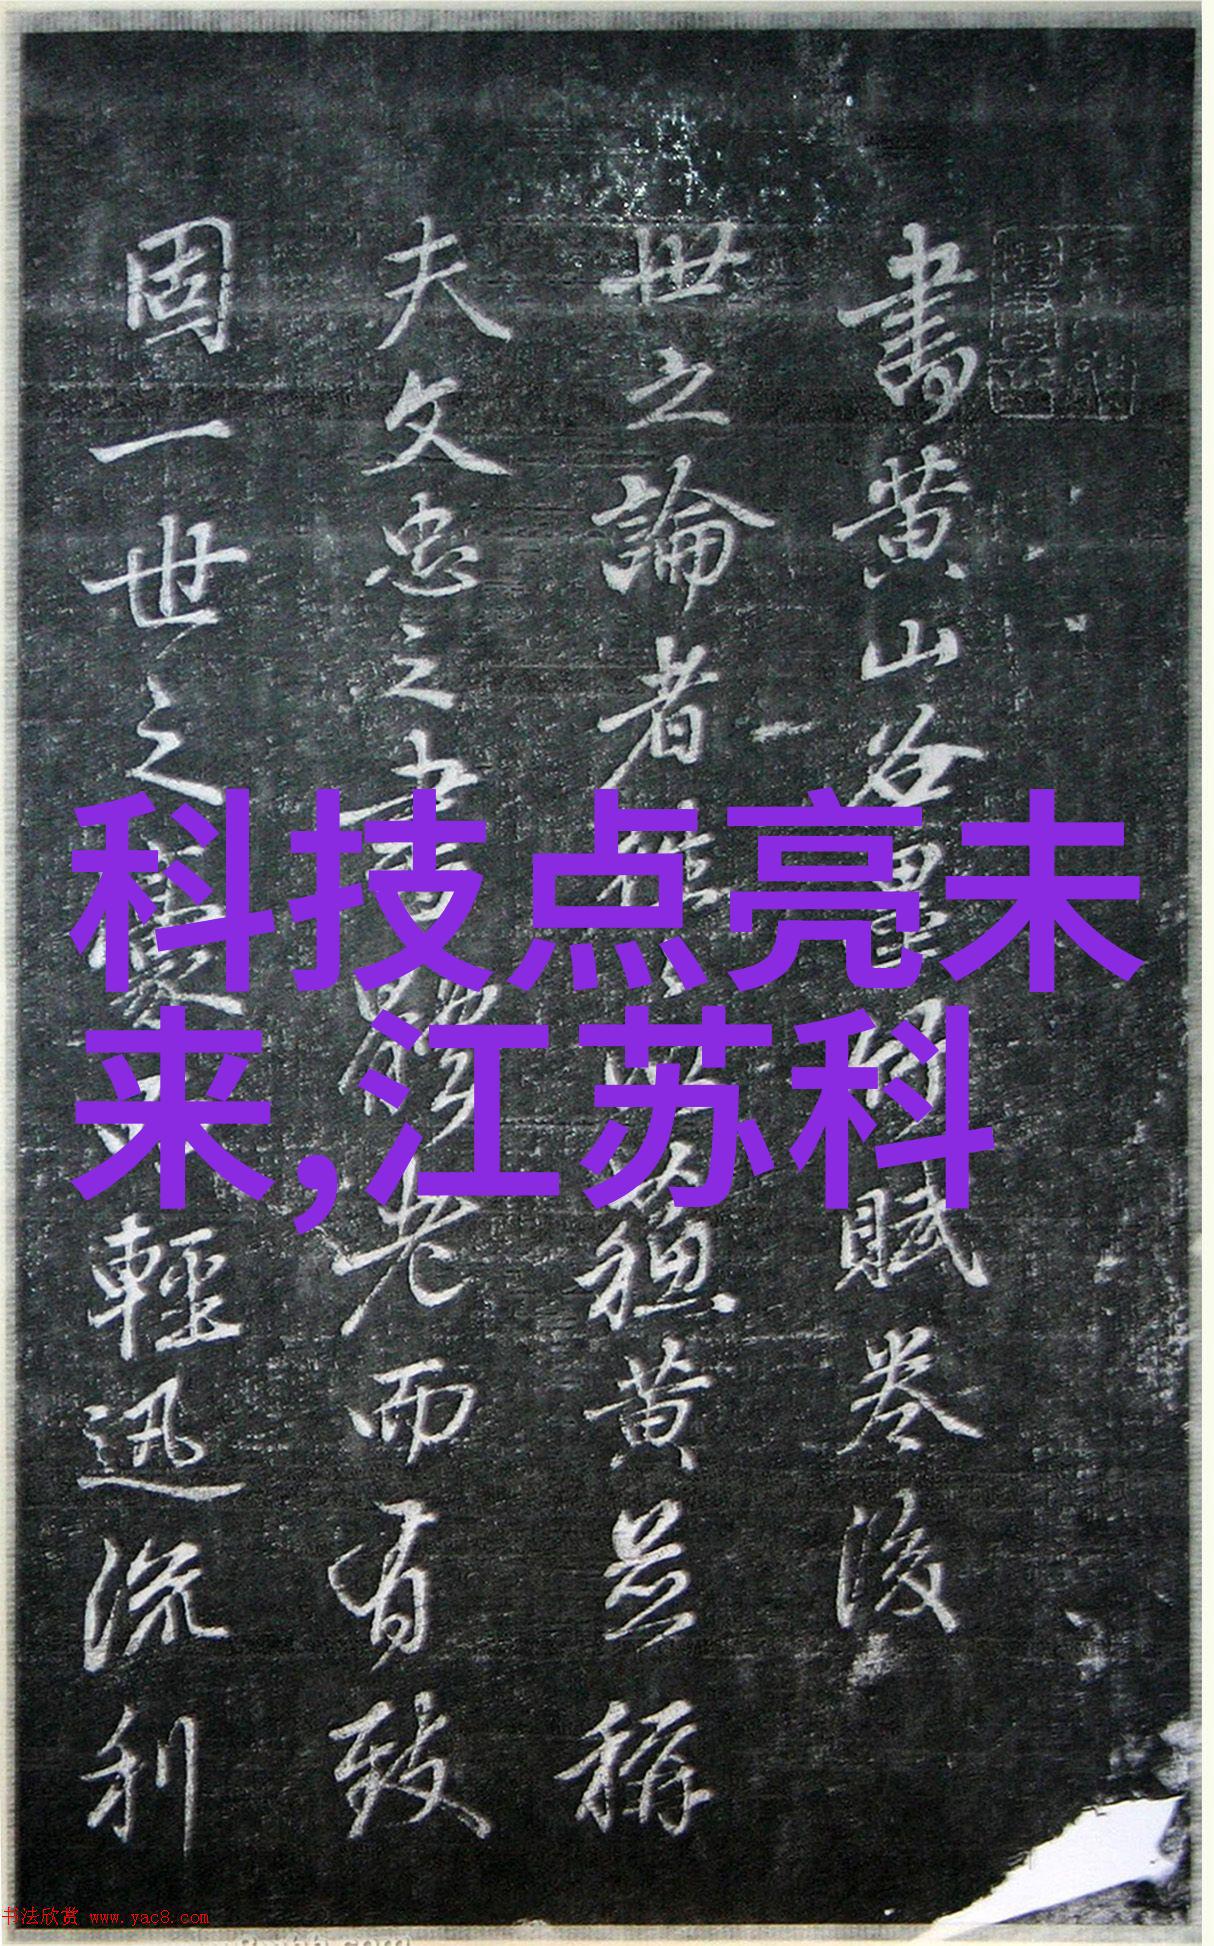 書黄山谷賦卷後
世之論者黄並稱
夫文忠之書體老而有致
固一世之輕迅流利
科技点亮未
来,江苏科
书法欣赏 www.yac8.com